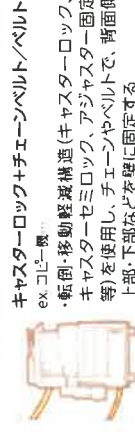 キャスターロック+チェーンベルト/ベルト
ex. コピー機…
・転倒・移動軽減構造(キャスターロック、
キャスターセミロック、アジャスター固定
等)を使用し、チェーンやベルトで、背面側
上部・下部などを壁に固定する